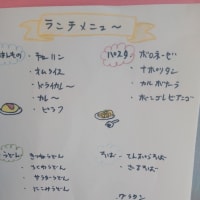 ランチメニュー
ごはんもの
・チャーハン
・オムライス
・ドライカレー
・カレー
・ピラフ
パスタ
・ボロネーゼ
・ナポリタン
・カルボナーラ
・ボンゴレビアンコ
うどん
・きつねうどん
・ちくわうどん
・サラダうどん
・にこみうどん
そば
・てんぷらそば
・ざるそば
グラタン